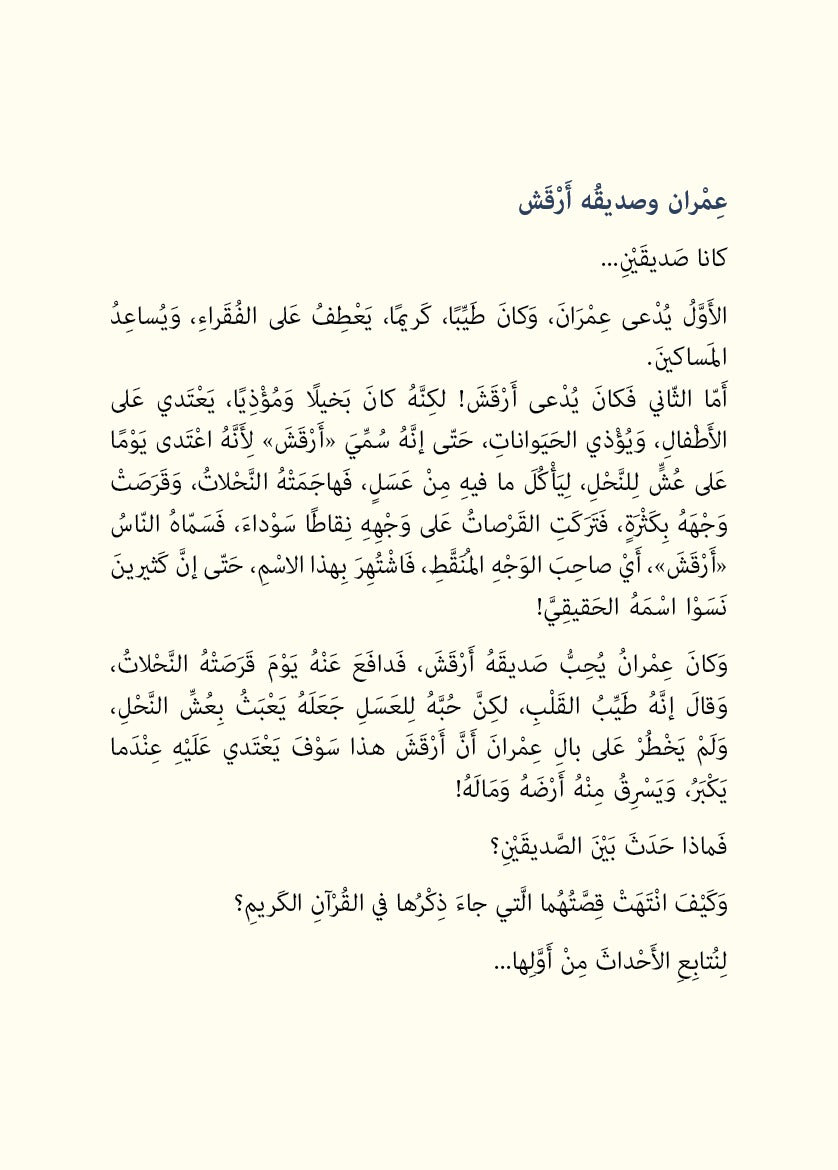 عِمْران وصديقُه أَرْقَش
كانا صَديقَيْنِ...
الأَوَّلُ يُدْعى عِمْرَانَ، وَكانَ طَيِّبًا، كَريمًا، يَعْطِفُ عَلى الفُقَراءِ، وَيُساعِدُ
المَساكينَ.
أَمّا الثّاني فَكانَ يُدْعى أَرْقَشَ! لكِنَّهُ كانَ بَخيلًا وَمُؤْذِيًا، يَعْتَدي عَلى
الأَطْفالِ، وَيُؤْذي الحَيَواناتِ، حَتّى إنَّهُ سُمِّيَ «أَرْقَشَ» لِأَنَّهُ اعْتَدى يَوْمًا
عَلى عُشٍّ لِلنَّحْلِ، لِيَأْكُلَ ما فيهِ مِنْ عَسَلٍ، فَهاجَمَتْهُ النَّحْلاتُ، وَقَرَصَتْ
وَجْهَهُ بِكَثْرَةٍ، فَتَرَكَتِ القَرْصاتُ عَلى وَجْهِهِ نِقاطًا سَوْداءَ، فَسَمّاهُ النّاسُ
«أَرْقَشَ»، أَيْ صاحِبَ الوَجْهِ المُنَقَّطِ، فَاشْتُهِرَ بِهذا الاسْمِ، حَتّى إنَّ كَثيرينَ
نَسَوْا اسْمَهُ الحَقيقِيَّ!
وَكانَ عِمْرانُ يُحِبُّ صَديقَهُ أَرْقَشَ، فَدافَعَ عَنْهُ يَوْمَ قَرَصَتْهُ النَّحْلاتُ،
وَقالَ إنَّهُ طَيِّبُ القَلْبِ، لكِنَّ حُبَّهُ لِلعَسَلِ جَعَلَهُ يَعْبَثُ بِعُشِّ النَّحْلِ،
وَلَمْ يَخْطُرْ عَلى بالِ عِمْرانَ أَنَّ أَرْقَشَ هذا سَوْفَ يَعْتَدي عَلَيْهِ عِنْدَما
يَكْبَرُ، وَيَسْرِقُ مِنْهُ أَرْضَهُ وَمَالَهُ!
فَماذا حَدَثَ بَيْنَ الصَّديقَيْنِ؟
وَكَيْفَ انْتَهَتْ قِصَّتُهُما الَّتي جاءَ ذِكْرُها في القُرْآنِ الكَريمِ؟
لِنُتابِعِ الأَحْداثَ مِنْ أَوَّلِها...